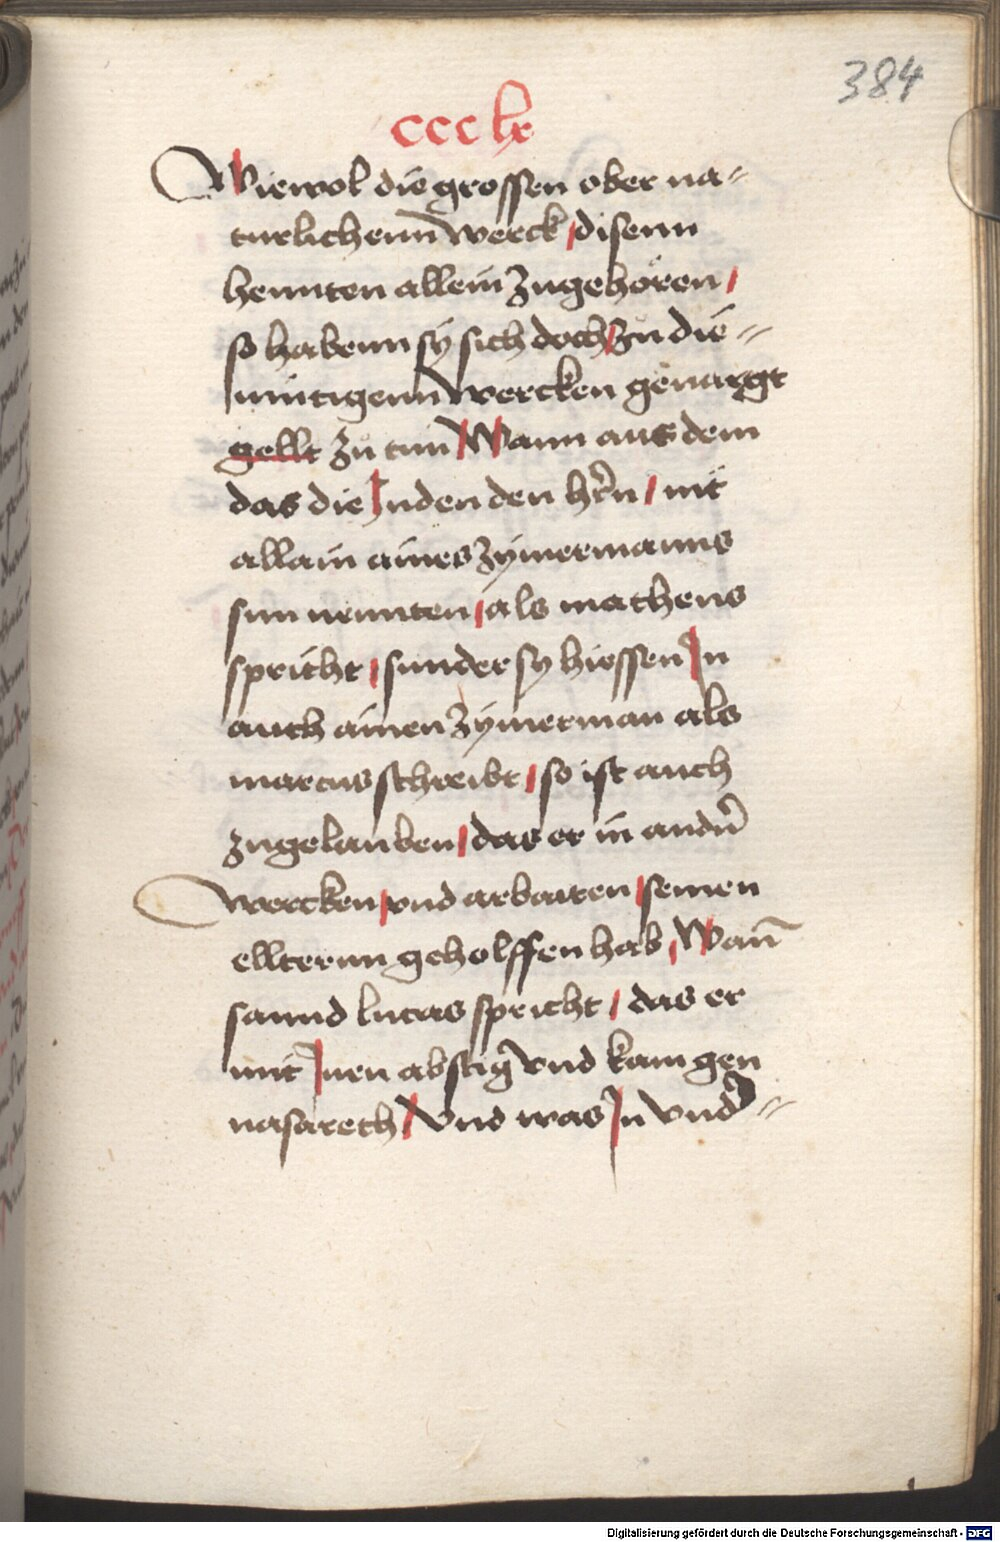 384
ccclx
Wiewol die grossen ober na-
turlichenn werck / disenn
hennten allein zugehören /
so habenn sy sich doch / zu die-
mütigenn wercken genaygt
gellt zu tun Wann aus dem
das die Juden den hern / nit
allain aines zymermanns
sun nennten / als matheus
spricht / sunder sy hiessen Jn
auch ainen zymerman als
marcus schreibt / so ist auch
zugelauben / das er in andern
wercken / vnd arbaiten / seinen
ellternn geholffen hab / Wann
sannd lucas spricht / das er
mit Jnen abstig vnd kam gen
nasareth / Vnd was Jn vnd-
Digitalisierung gefördert durch die Deutsche Forschungsgemeinschaft - DFG